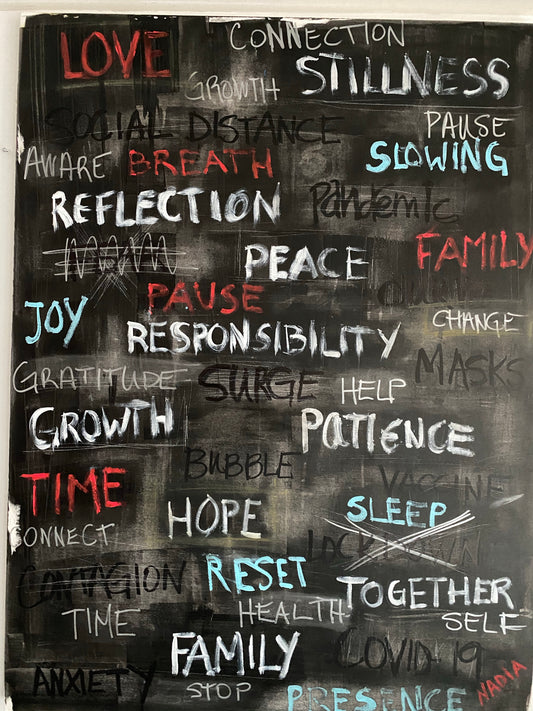 CONNECTION
LOVE
STILLNESS
GROWTH
SOCIAL DISTANCE
PAUSE
AWARE BREATH
SLOWING
REFLECTION
Pandemic
PEACE
FAMILY
PAUSE
JOY
CHANGE
RESPONSIBILITY
MASKS
GRATITUDE
SURGE
HELP
GROWTH
PATIENCE
BUBBLE
TIME
VACCINE
HOPE
SLEEP
CONNECT
LOCKDOWN
CONTAGION
RESET
TOGETHER
TIME
HEALTH
SELF
FAMILY
COVID-19
ANXIETY
STOP
PRESENCE
NADIA